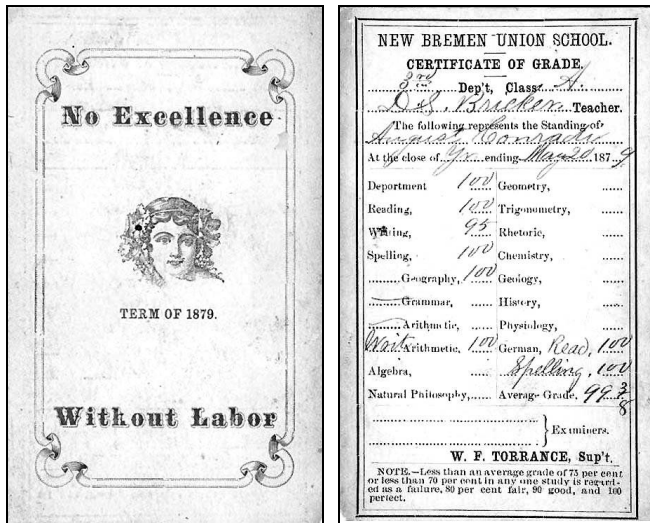 No Excellence
TERM OF 1879.
Without Labor
NEW BREMEN UNION SCHOOL.
CERTIFICATE OF GRADE.
3rd Dep't, Class A.
D. S. Bricker Teacher.
The following represents the Standing of
August Conradi
At the close of Yr. ending May 20 1879
Deportment 100 Geometry,
Reading, 100 Trigonometry,
Writing, 95 Rhetoric,
Spelling, 100 Chemistry,
Geography, 100 Geology,
Grammar, History,
Arithmetic, Physiology,
Writ Arithmetic, 100 German, Read, 100
Algebra, Spelling, 100
Natural Philosophy, Average Grade, 99 3/8
Examiners.
W. F. TORRANCE, Sup't.
NOTE.—Less than an average grade of 75 per cent
or less than 70 per cent in any one study is regard-
ed as a failure, 80 per cent fair, 90 good, and 100
perfect.